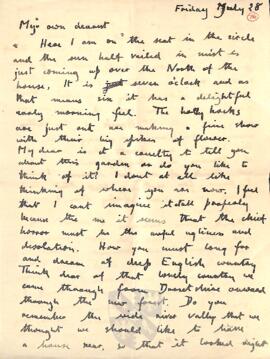 Friday July 28
My own dearest
Here I am on the seat in the circle
and the sun half veiled in mist is
just coming up over the North of the
house, It is seven o'clock and as
that means six it has a delightful
early morning feel. The holly hocks
are just out are making a fine show
with their big spikes of flower.
My dear is it a cruelty to tell you
about this garden or do you like
to think of it? I dont at all like
thinking of where you are now. I feel
that I cant imagine it all properly
because the me it seems that the chief
horror must be the awful ugliness and
desolation. How you must long for
and dream of deep English country
Think dear of that lovely country we
came through from Dorsetshire onward
through the new forest. Do you
remember the wide river valley that we
thought we should like to have
a house near, so that it looked